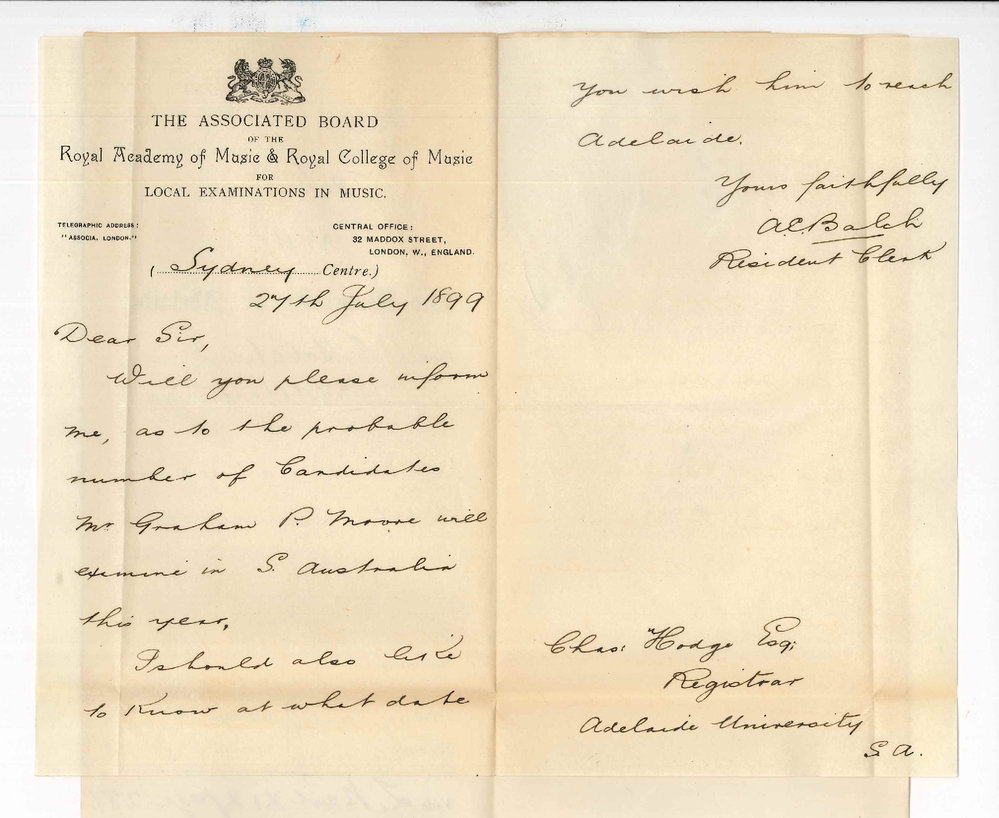 THE ASSOCIATED BOARD
OF THE
Royal Academy of Music & Royal College of Music
FOR
LOCAL EXAMINATIONS IN MUSIC.
TELEGRAPHIC ADDRESS:
"ASSOCIA, LONDON."
CENTRAL OFFICE:
32 MADDOX STREET,
LONDON, W., ENGLAND.
(Sydney Centre.)
27th July 1899
Dear Sir,
Will you please inform
me, as to the probable
number of Candidates
Mr Graham P. Moore will
examine in S. Australia
this year,
I should also like
to know at what date
you wish him to reach
Adelaide.
Yours faithfully
A.C. Balch
Resident Clerk
Chas: Hodge Esq:
Registrar
Adelaide University
S.A.